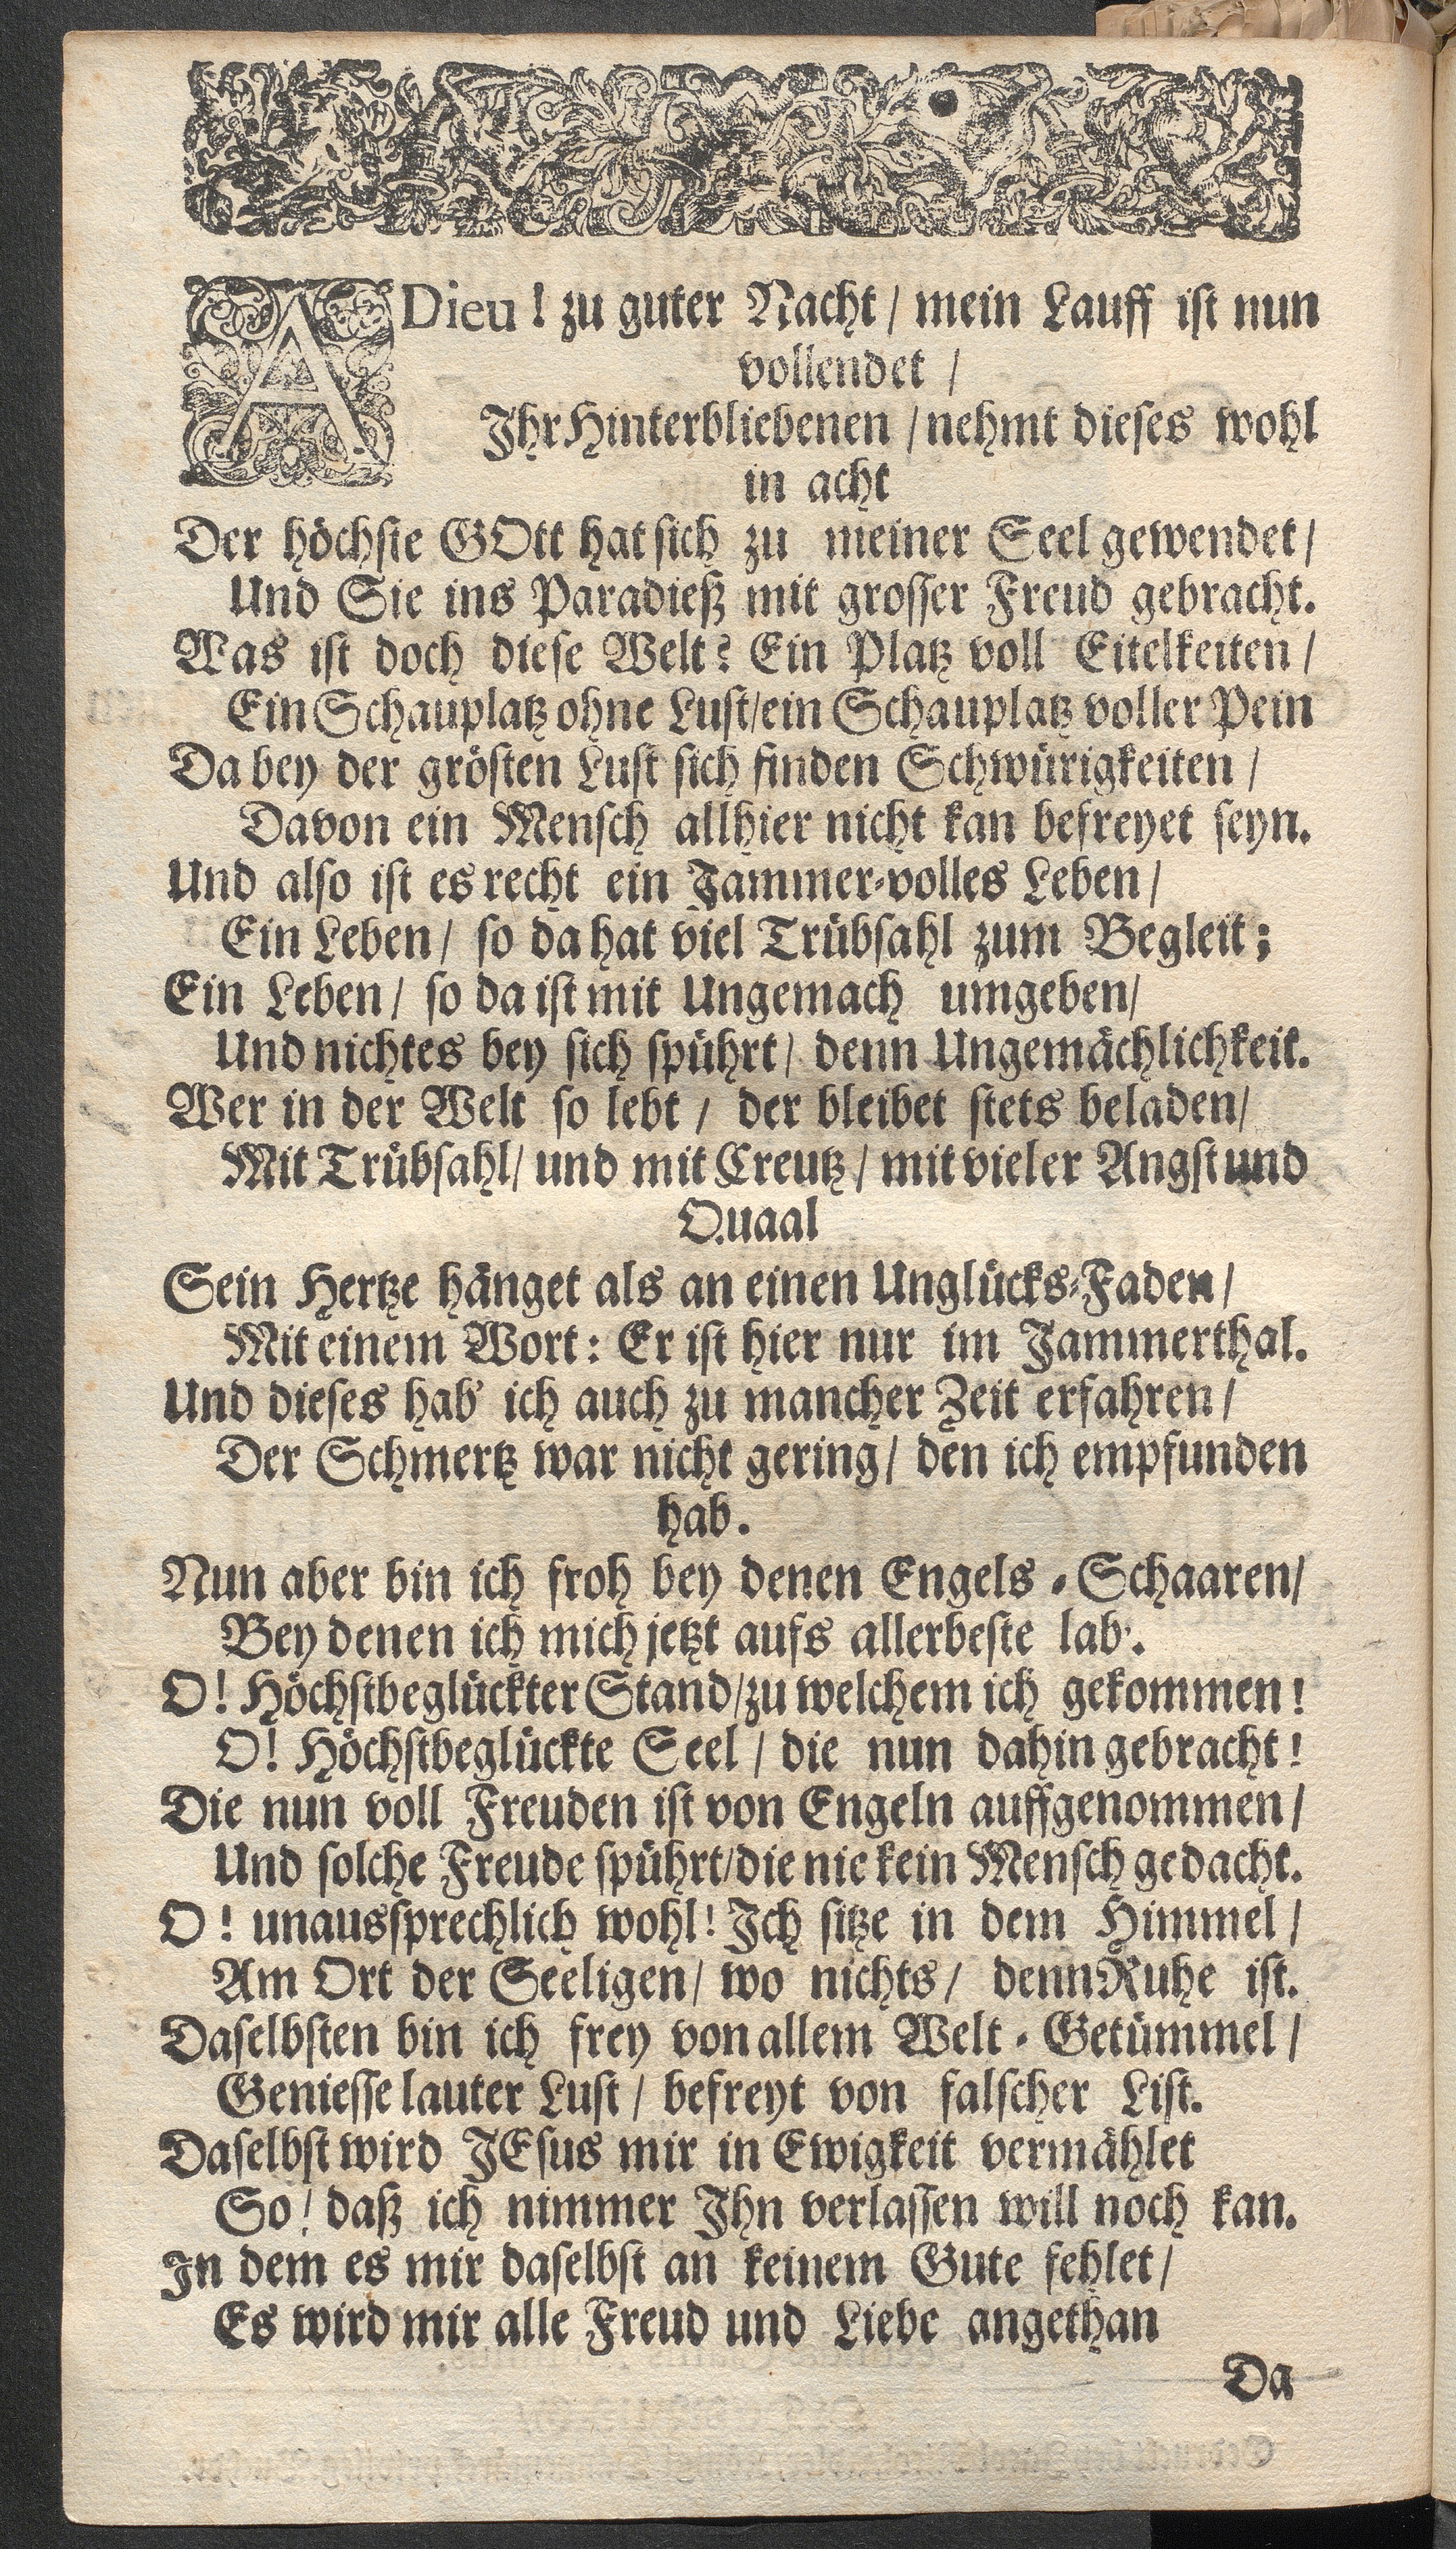 ADieu! zu guter Nacht / mein Lauff ist nun
vollendet /
Ihr Hinterbliebenen / nehmt dieses wohl
in acht
Der höchste GOtt hat sich zu meiner Seel gewendet /
Und Sie ins Paradieß mit grosser Freud gebracht.
Was ist doch diese Welt? Ein Platz voll Eitelkeiten /
Ein Schauplatz ohne Lust / ein Schauplatz voller Pein
Da bey der grösten Lust sich finden Schwürigkeiten /
Davon ein Mensch allhier nicht kan befreyet seyn.
Und also ist es recht ein Jammer-volles Leben /
Ein Leben / so da hat viel Trübsahl zum Begleit;
Ein Leben / so da ist mit Ungemach umgeben /
Und nichtes bey sich spührt / denn Ungemächlichkeit.
Wer in der Welt so lebt / der bleibet stets beladen /
Mit Trübsahl / und mit Creutz / mit vieler Angst und
Quaal
Sein Hertze hänget als an einen Unglücks-Faden /
Mit einem Wort: Er ist hier nur im Jammerthal.
Und dieses hab' ich auch zu mancher Zeit erfahren /
Der Schmertz war nicht gering / den ich empfunden
hab.
Nun aber bin ich froh bey denen Engels-Schaaren /
Bey denen ich mich jetzt aufs allerbeste lab'.
O! Höchstbeglückter Stand / zu welchem ich gekommen!
O! Höchstbeglückte Seel / die nun dahin gebracht!
Die nun voll Freuden ist von Engeln auffgenommen /
Und solche Freude spührt / die nie kein Mensch gedacht.
O! unaussprechlich wohl! Ich sitze in dem Himmel /
Am Ort der Seeligen / wo nichts / denn Ruhe ist.
Daselbsten bin ich frey von allem Welt-Getümmel /
Geniesse lauter Lust / befreyt von falscher List.
Daselbst wird JEsus mir in Ewigkeit vermählet
So! daß ich nimmer Ihn verlassen will noch kan.
In dem es mir daselbst an keinem Gute fehlet /
Es wird mir alle Freud und Liebe angethan
Da